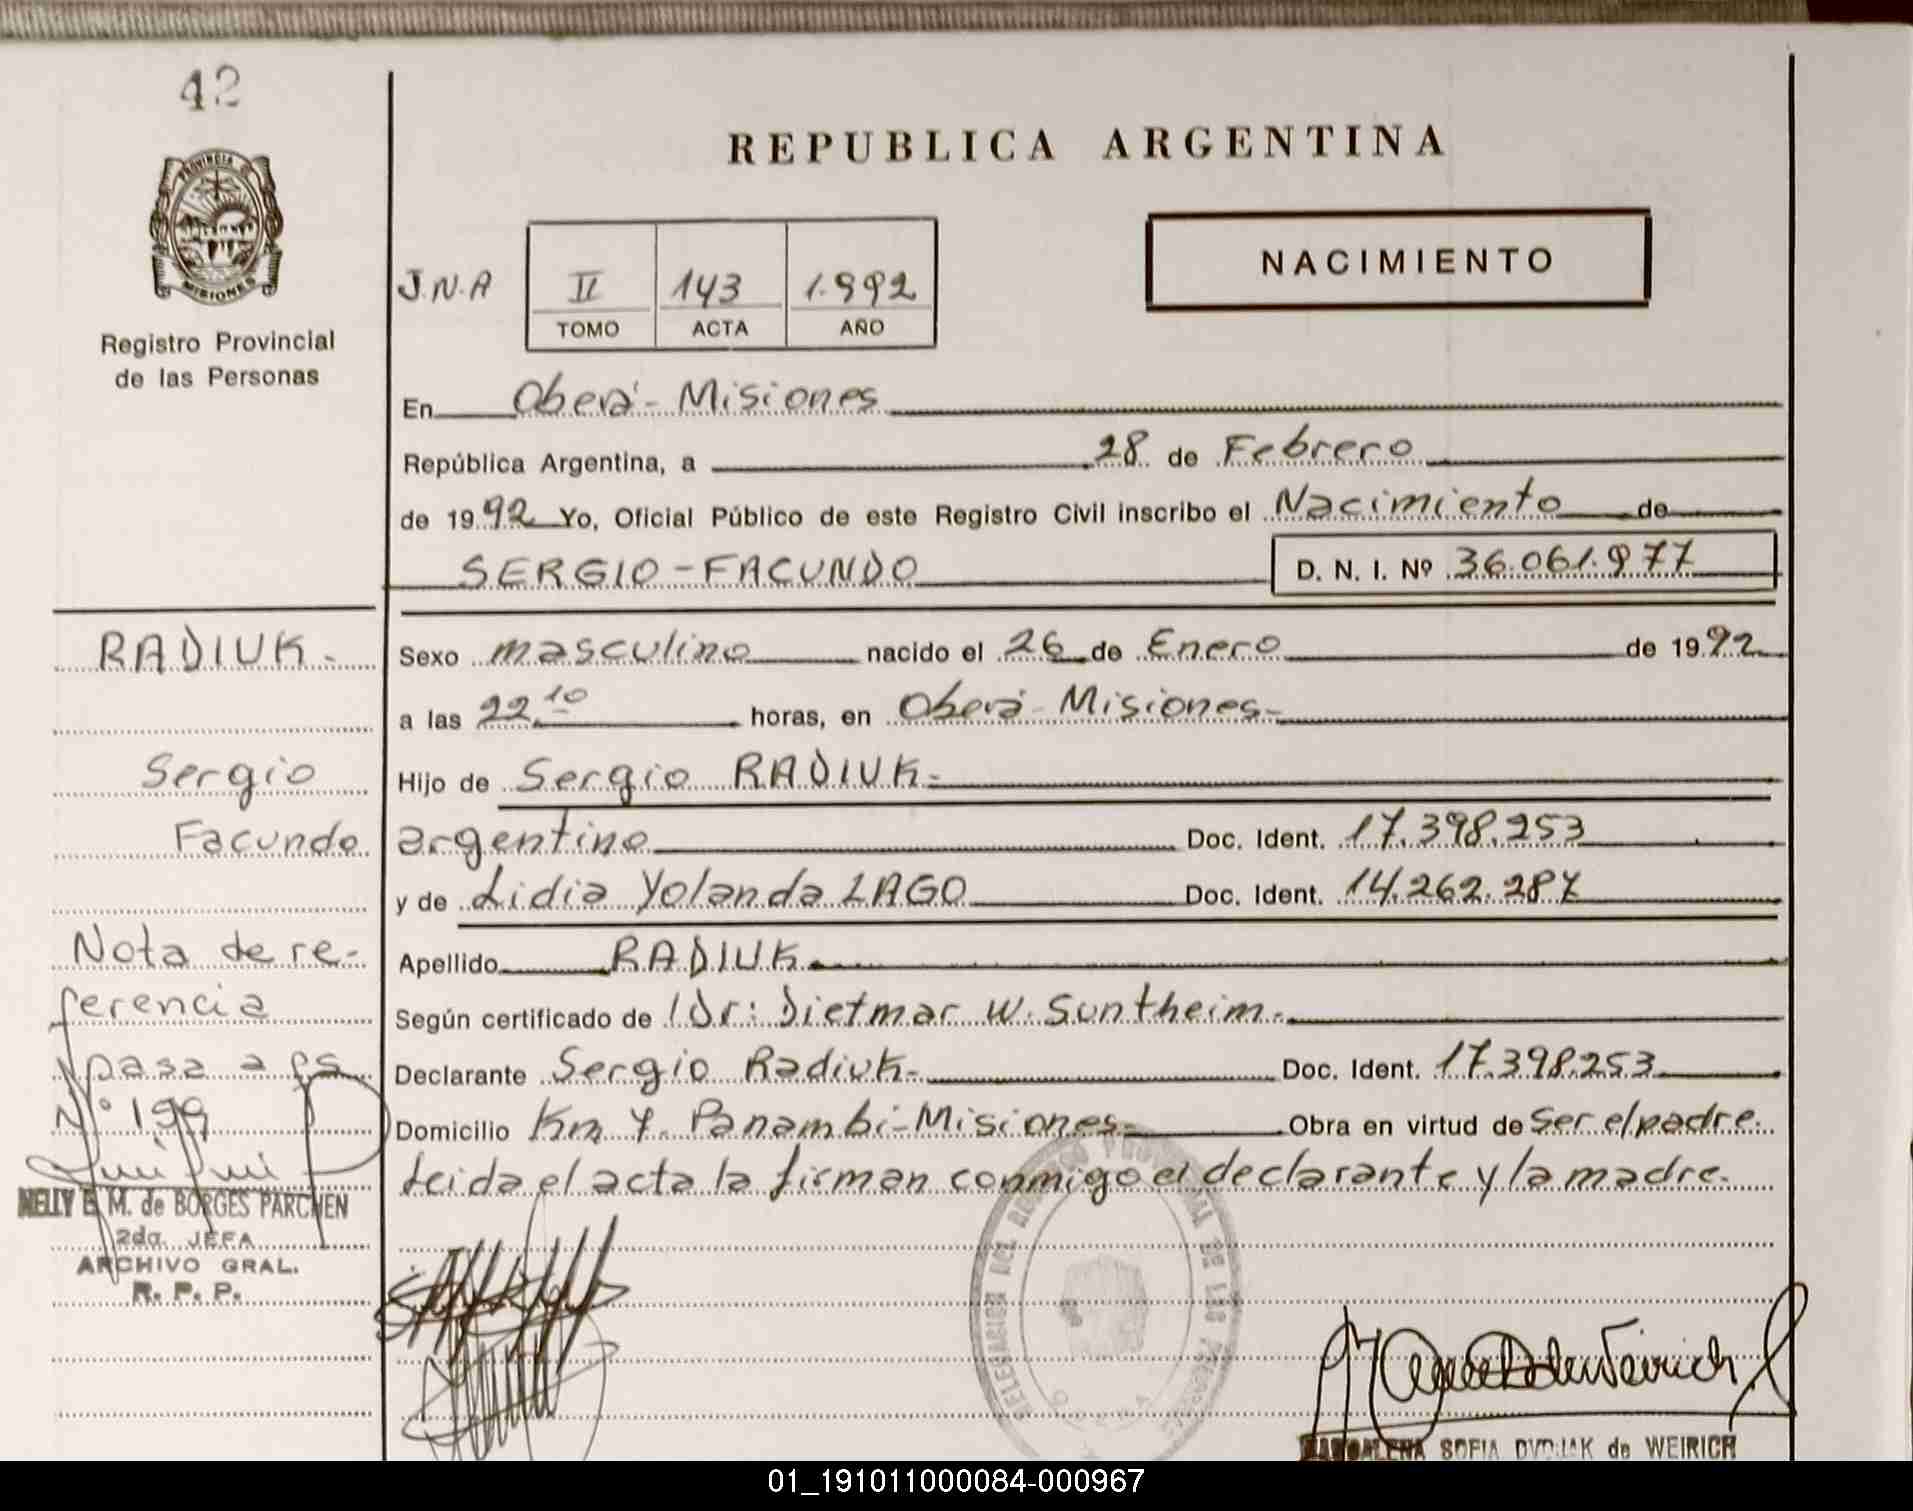 42
PROVINCIA DE
MISIONES
Registro Provincial
de las Personas
REPUBLICA ARGENTINA
NACIMIENTO
J.N.A II 143 1.992
TOMO ACTA AÑO
En Oberá - Misiones
República Argentina, a 28 de Febrero
de 1992 Yo, Oficial Público de este Registro Civil inscribo el Nacimiento de
SERGIO - FACUNDO D. N. I. Nº 36.061.977
RADIUK -
Sergio
Facundo
Nota de re-
ferencia
pasa a fs
Nº 199
NELLY E. M. de BORGES PARCHEN
2da. JEFA
ARCHIVO GRAL.
R. P. P.
Sexo masculino nacido el 26 de Enero de 1992
a las 22 10 horas, en Oberá - Misiones -
Hijo de Sergio RADIUK -
argentino Doc. Ident. 17.398.253
y de Lidia Yolanda LAGO Doc. Ident. 14.262.287
Apellido RADIUK -
Según certificado de Dr: Dietmar W. Suntheim -
Declarante Sergio Radiuk - Doc. Ident. 17.398.253
Domicilio Km Panambi - Misiones - Obra en virtud de ser el padre.
Leida el acta la firman conmigo el declarante y la madre.
DELEGACION DEL REGISTRO PROVINCIAL DE LAS PERSONAS
OBERA
MAGDALENA SOFIA DVORJAK de WEIRICH
01_191011000084-000967